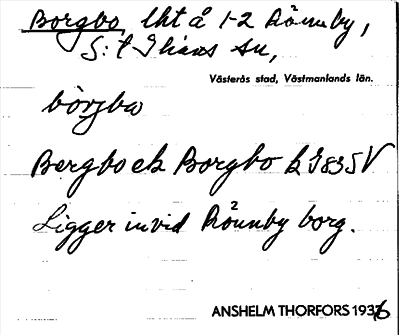 Borgbo, lht å 1-2 Rönnby,
S:t Ilians sn,
Västerås stad, Västmanlands län.
bòrjbω
Bergbo ek Borgbo k J835V
Ligger invid Rönnby borg.
2
ANSHELM THORFORS 1936